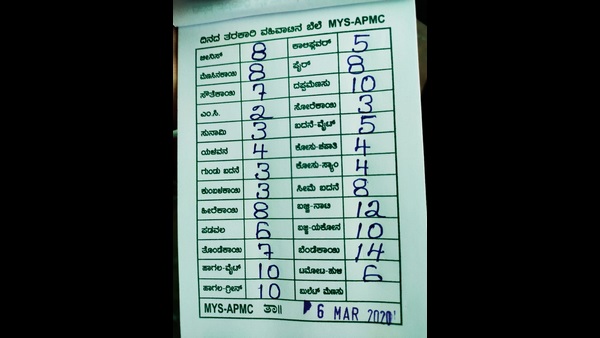 ದಿನದ ತರಕಾರಿ ವಹಿವಾಟಿನ ಬೆಲೆ MYS-APMC
ಬೀನಿಸ್ 8 ಕಾಲಿಫ್ಲವರ್ 5
ಮೆಣಸಿನಕಾಯಿ 8 ಫೈರ್ 8
ಸೌತೆಕಾಯಿ 7 ದಪ್ಪಮೆಣಸು 10
ಎಂ.ಸಿ. 2 ಸೋರೆಕಾಯಿ 3
ಸುನಾಮಿ 3 ಬದನೆ-ವೈಟ್ 5
ಯಳವನ 4 ಕೋಸು-ಚಪಾತಿ 4
ಗುಂಡು ಬದನೆ 3 ಕೋಸು-ಸ್ಯಾಂ 4
ಕುಂಬಳಕಾಯಿ 3 ಸೀಮೆ ಬದನೆ 8
ಹೀರೆಕಾಯಿ 8 ಬಜ್ಜಿ-ನಾಟಿ 12
ಪಡವಲ 6 ಬಜ್ಜಿ-ಯಕೋನ 10
ತೊಂಡೆಕಾಯಿ 7 ಬೆಂಡೆಕಾಯಿ 14
ಹಾಗಲ-ವೈಟ್ 10 ಟಮೋಟ-ಹುಳಿ 6
ಹಾಗಲ-ಗ್ರೀನ್ 10 ಬುಲೆಟ್ ಮೆಣಸು
MYS-APMC ತಾ॥ 6 MAR 2020